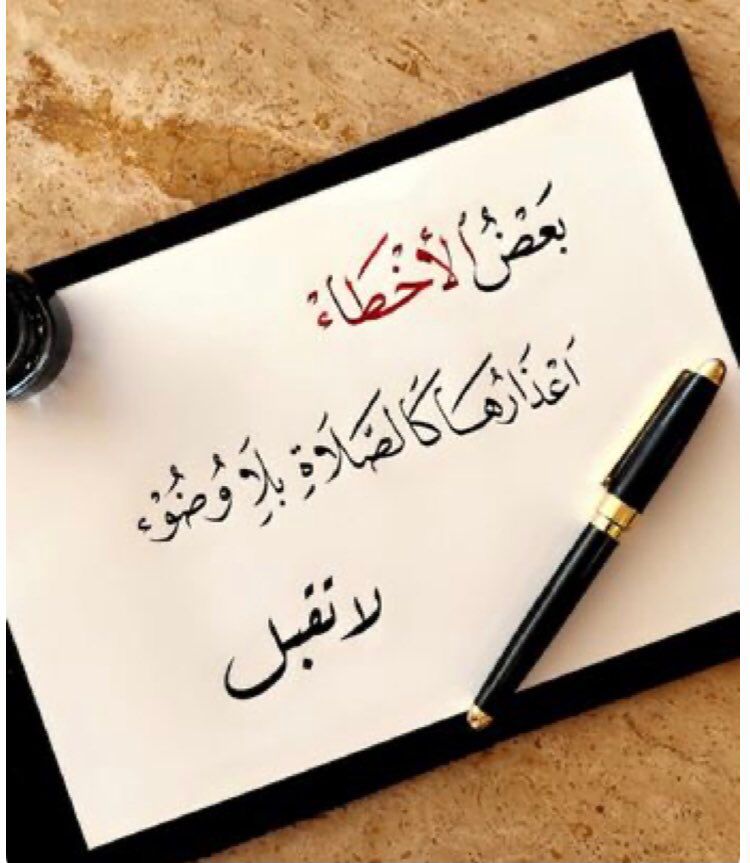 بَعْضُ ألأَخْطَاءْ
اَعْذَارُهَا كَالصَّلَاةِ بِلَا وُضُوْء
لا تقبل